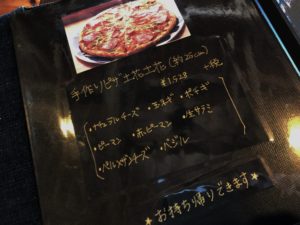 手作りピザ土花土花(約25cm)
¥1,528 +税
・ナチュラルチーズ ・エリンギ ・ポテギ
・ピーマン ・赤ピーマン ・生サラミ
・パルメザンチーズ ・バジル
★お持ち帰りできます★